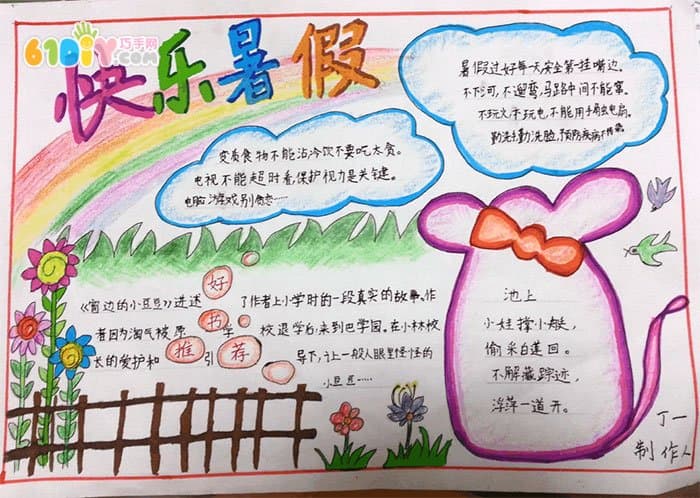 61DIY巧手网
快乐暑假
暑假过好每天安全第一挂嘴边。
不下河,不遛弯,马路中间不能窜。
不玩火,不玩电,不能用手扇电扇。
勤洗手勤洗脸,预防疾病不
变质食物不能沾冷饮不要吃太贪。
电视不能超时看,保护视力是关键。
电脑游戏别痴恋……
好书推荐
《窗边的小豆豆》讲述了作者上小学时的一段真实的故事。作
者因为淘气被原学校退学后,来到巴学园。在小林校
长的爱护和引导下,让一般人眼里怪怪的
小豆豆……
池上
小娃撑小艇,
偷采白莲回。
不解藏踪迹,
浮萍一道开。
丁一
制作人